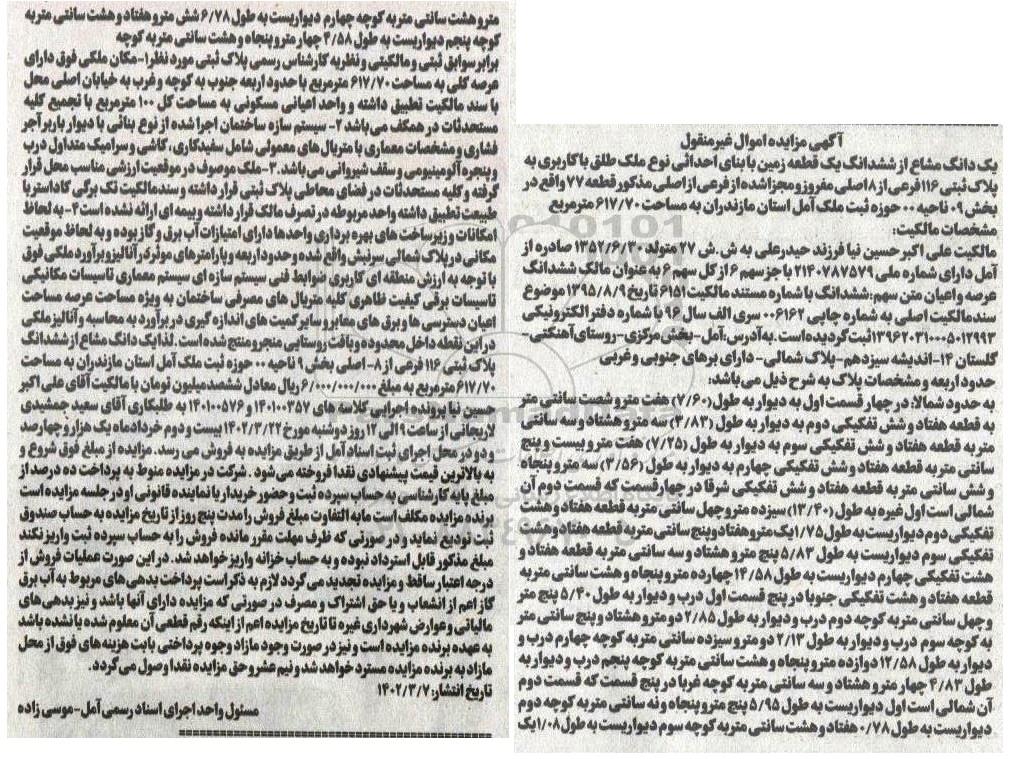 آگهی مزایده اموال غیرمنقول
یک دانگ مشاع از ششدانگ یک قطعه زمین با بنای احداثی نوع ملک طلق با کاربری به
پلاک ثبتی ۱۱۶ فرعی از ۸ اصلی مفروز و مجزا شده از فرعی از اصلی مذکور قطعه ۷۷ واقع در
بخش ۰۹ ناحیه ۰۰ حوزه ثبت ملک آمل استان مازندران به مساحت ۶۱۷/۷۰ مترمربع
مشخصات مالکیت:
مالکیت علی اکبر حسین نیا فرزند حیدرعلی به ش.ش ۲۷ متولد ۱۳۵۲/۶/۳۰ صادره از
آمل دارای شماره ملی ۲۱۴۰۷۸۷۵۷۹ با جز سهم ۶ از کل سهم ۶ به عنوان مالک ششدانگ
عرصه و اعیان متن سهم: ششدانگ با شماره مستند مالکیت ۶۱۵۱ تاریخ ۱۳۹۵/۸/۹ موضوع
سند مالکیت اصلی به شماره چاپی ۰۰۶۱۶۲ سری الف سال ۹۶ با شماره دفتر الکترونیکی
۱۳۹۶۲۰۳۱۰۰۰۵۰۱۲۹۹۳ ثبت گردیده است. به آدرس: آمل- بخش مرکزی- روستای آهنکتی-
گلستان ۱۴- اندیشه سیزدهم- پلاک شمالی- دارای برهای جنوبی و غربی
حدود اربعه و مشخصات پلاک به شرح ذیل می باشد:
به حدود شمالا: در چهار قسمت اول به دیوار به طول (۷/۶۰) هفت متر و شصت سانتی متر
به قطعه هفتاد و شش تفکیکی دوم به دیوار به طول (۳/۸۳) سه متر و هشتاد و سه سانتی
متر به قطعه هفتاد و شش تفکیکی سوم به دیوار به طول (۷/۲۵) هفت متر و بیست و پنج
سانتی متر به قطعه هفتاد و شش تفکیکی چهارم به دیوار به طول (۳/۵۶) سه متر و پنجاه
و شش سانتی متر به قطعه هفتاد و شش تفکیکی شرقا در چهار قسمت که قسمت دوم آن
شمالی است اول غیره به طول (۱۳/۴۰) سیزده متر و چهل سانتی متر به قطعه هفتاد و هشت
تفکیکی دوم دیواریست به طول ۱/۷۵ یک متر و هفتاد و پنج سانتی متر به قطعه هفتاد و هشت
تفکیکی سوم دیواریست به طول ۵/۸۳ پنج متر و هشتاد و سه سانتی متر به قطعه هفتاد و
هشت تفکیکی چهارم دیواریست به طول ۱۴/۵۸ چهارده متر و پنجاه و هشت سانتی متر به
قطعه هفتاد و هشت تفکیکی جنوبا در پنج قسمت اول درب و دیوار به طول ۵/۴۰ پنج متر
و چهل سانتی متر به کوچه دوم درب و دیوار به طول ۲/۸۵ دو متر و هشتاد و پنج سانتی متر
به کوچه سوم درب و دیوار به طول ۲/۱۳ دو متر و سیزده سانتی متر به کوچه چهارم درب و
دیوار به طول ۱۲/۵۸ دوازده متر و پنجاه و هشت سانتی متر به کوچه پنجم درب و دیوار به
طول ۴/۸۳ چهار متر و هشتاد و سه سانتی متر به کوچه غربا در پنج قسمت که قسمت دوم
آن شمالی است اول دیواریست به طول ۵/۹۵ پنج متر و پنجاه و نه سانتی متر به کوچه دوم
دیواریست به طول ۰/۷۸ هفتاد و هشت سانتی متر به کوچه سوم دیواریست به طول ۱/۰۸ یک
متر و هشت سانتی متر به کوچه چهارم دیواریست به طول ۶/۷۸ شش متر و هفتاد و هشت سانتی متر به
کوچه پنجم دیواریست به طول ۴/۵۸ چهار متر و پنجاه و هشت سانتی متر به کوچه
برابر سوابق ثبتی و مالکیتی و نظریه کارشناس رسمی پلاک ثبتی مورد نظر ۱- مکان ملکی فوق دارای
عرصه کلی به مساحت ۶۱۷/۷۰ مترمربع با حدود اربعه جنوب به کوچه و غرب به خیابان اصلی محل
با سند مالکیت تطبیق داشته و واحد اعیانی مسکونی به مساحت کل ۱۰۰ مترمربع با تجمیع کلیه
مستحدثات در همکف می باشد ۲- سیستم سازه ساختمان اجرا شده از نوع بنائی با دیوار باربر آجر
فشاری و مشخصات معماری با متریال های معمولی شامل سفیدکاری، کاشی و سرامیک متداول درب
و پنجره آلومینیومی و سقف شیروانی می باشد. ۳- ملک موصوف در موقعیت ارزشی مناسب محل قرار
گرفته و کلیه مستحدثات در فضای محاطی پلاک ثبتی قرار داشته و سند مالکیت تک برگی کاداستر با
طبیعت تطبیق داشته واحد مربوطه در تصرف مالک قرار داشته و بیمه ای ارائه نشده است ۴- به لحاظ
امکانات و زیرساخت های بهره برداری واحدها دارای امتیازات آب برق و گاز بوده و به لحاظ موقعیت
مکانی در پلاک شمالی سرنبش واقع شده و حدود اربعه و پارامترهای موثر در آنالیز و برآورد ملکی فوق
با توجه به ارزش منطقه ای کاربری ضوابط فنی سیستم سازه ای سیستم معماری تاسیسات مکانیکی
تاسیسات برقی کیفیت ظاهری کلیه متریال های مصرفی ساختمان به ویژه مساحت عرصه مساحت
اعیان دسترسی ها و برق های معابر و سایر کمیت های اندازه گیری در برآورد به محاسبه و آنالیز ملکی
در این نقطه داخل محدوده و بافت روستایی منجر و منتج شده است. لذا یک دانگ مشاع از ششدانگ
پلاک ثبتی ۱۱۶ فرعی از ۸- اصلی بخش ۹ ناحیه ۰۰ حوزه ثبت ملک آمل استان مازندران به مساحت
۶۱۷/۷۰ مترمربع به مبلغ ۶/۰۰۰/۰۰۰/۰۰۰ ریال معادل ششصد میلیون تومان با مالکیت آقای علی اکبر
حسین نیا پرونده اجرایی کلاسه های ۱۴۰۱۰۰۳۵۷ و ۱۴۰۱۰۰۵۷۶ به طلبکاری آقای سعید جمشیدی
لاریجانی از ساعت ۹ الی ۱۲ روز دوشنبه مورخ ۱۴۰۲/۳/۲۲ بیست و دوم خردادماه یک هزار و چهارصد
و دو در محل اجرای ثبت اسناد آمل از طریق مزایده به فروش می رسد. مزایده از مبلغ فوق شروع و
به بالاترین قیمت پیشنهادی نقدا فروخته می شود. شرکت در مزایده منوط به پرداخت ده درصد از
مبلغ پایه کارشناسی به حساب سپرده ثبت و حضور خریدار یا نماینده قانونی او در جلسه مزایده است
برنده مزایده مکلف است مابه التفاوت مبلغ فروش را مدت پنج روز از تاریخ مزایده به حساب صندوق
ثبت تودیع نماید و در صورتی که ظرف مهلت مقرر مانده فروش را به حساب سپرده ثبت واریز نکند
مبلغ مذکور قابل استرداد نبوده و به حساب خزانه واریز خواهد شد. در این صورت عملیات فروش از
درجه اعتبار ساقط و مزایده تجدید می گردد لازم به ذکر است پرداخت بدهی های مربوط به آب برق
گاز اعم از انشعاب و یا حق اشتراک و مصرف در صورتی که مزایده دارای آنها باشد و نیز بدهی های
مالیاتی و عوارض شهرداری غیره تا تاریخ مزایده اعم از اینکه رقم قطعی آن معلوم شده یا نشده باشد
به عهده برنده مزایده است و نیز در صورت وجود مازاد وجوه پرداختی بابت هزینه های فوق از محل
مازاد به برنده مزایده مسترد خواهد شد و نیم عشر و حق مزایده نقدا وصول می گردد.
تاریخ انتشار: ۱۴۰۲/۳/۷
مسئول واحد اجرای اسناد رسمی آمل- موسی زاده